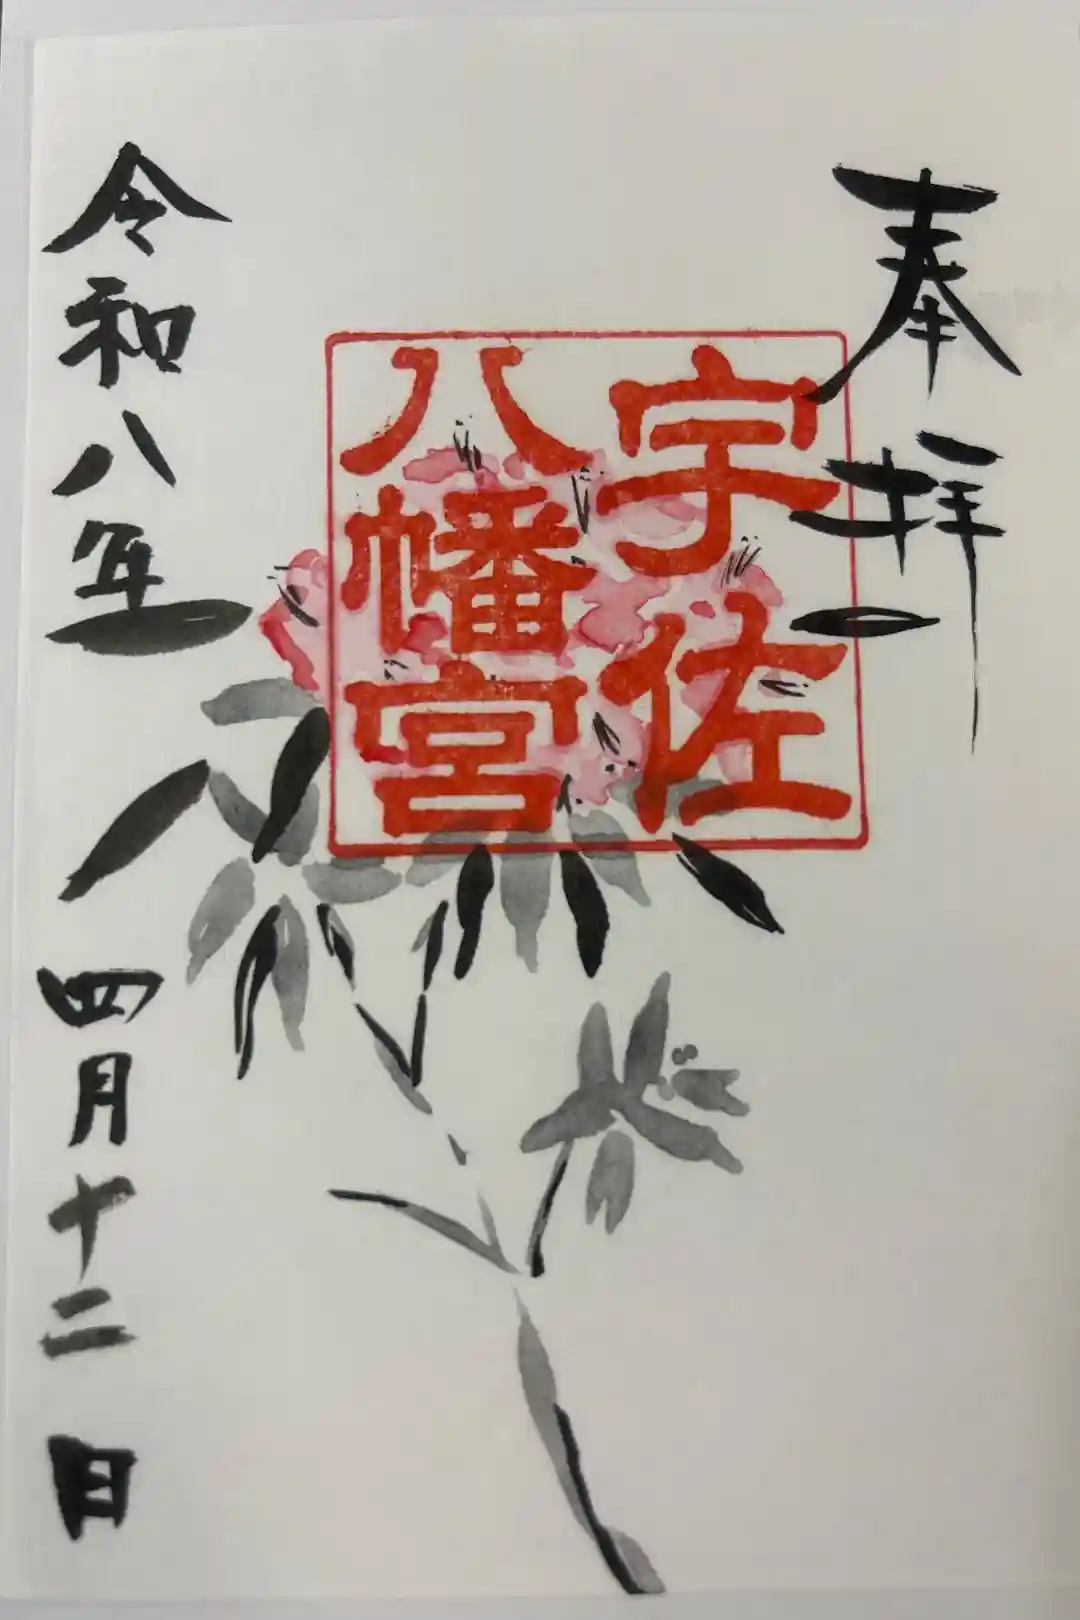 奉拝
宇佐
八幡宮
令和八年 四月十二日